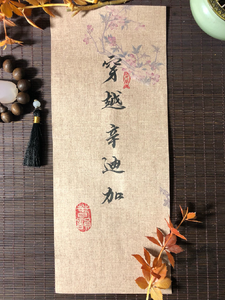 穿越辛迪加